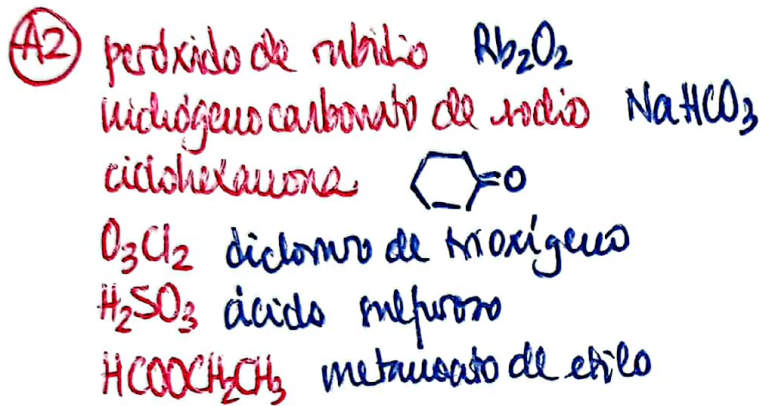 A2 peróxido de rubidio Rb₂O₂
hidrógenocarbonato de sodio NaHCO₃
ciclohexanona =O
O₃Cl₂ dicloruro de trioxígeno
H₂SO₃ ácido sulfuroso
HCOOCH₂CH₃ metanoato de etilo